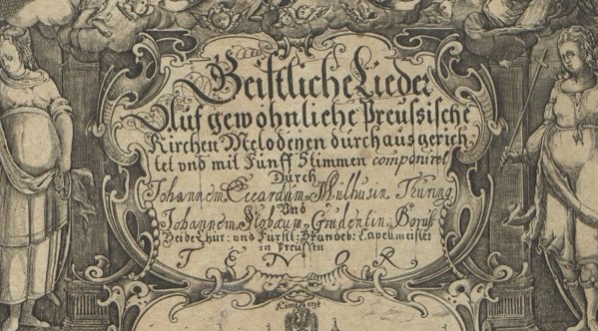 Geistliche Lieder
Auf gewöhnliche Preussische
Kirchen Melodeyen durchaus gerich
tet vnd mit Fünff Stimmen componiret
Durch
Johannem Eccardum Mulhusin. Thuring
Vnd
Johannem Stobæum Graudentin. Boruss
Beide Chur: vnd Fürstl: Brandeb: Capellmeister
in Preussen
TENOR